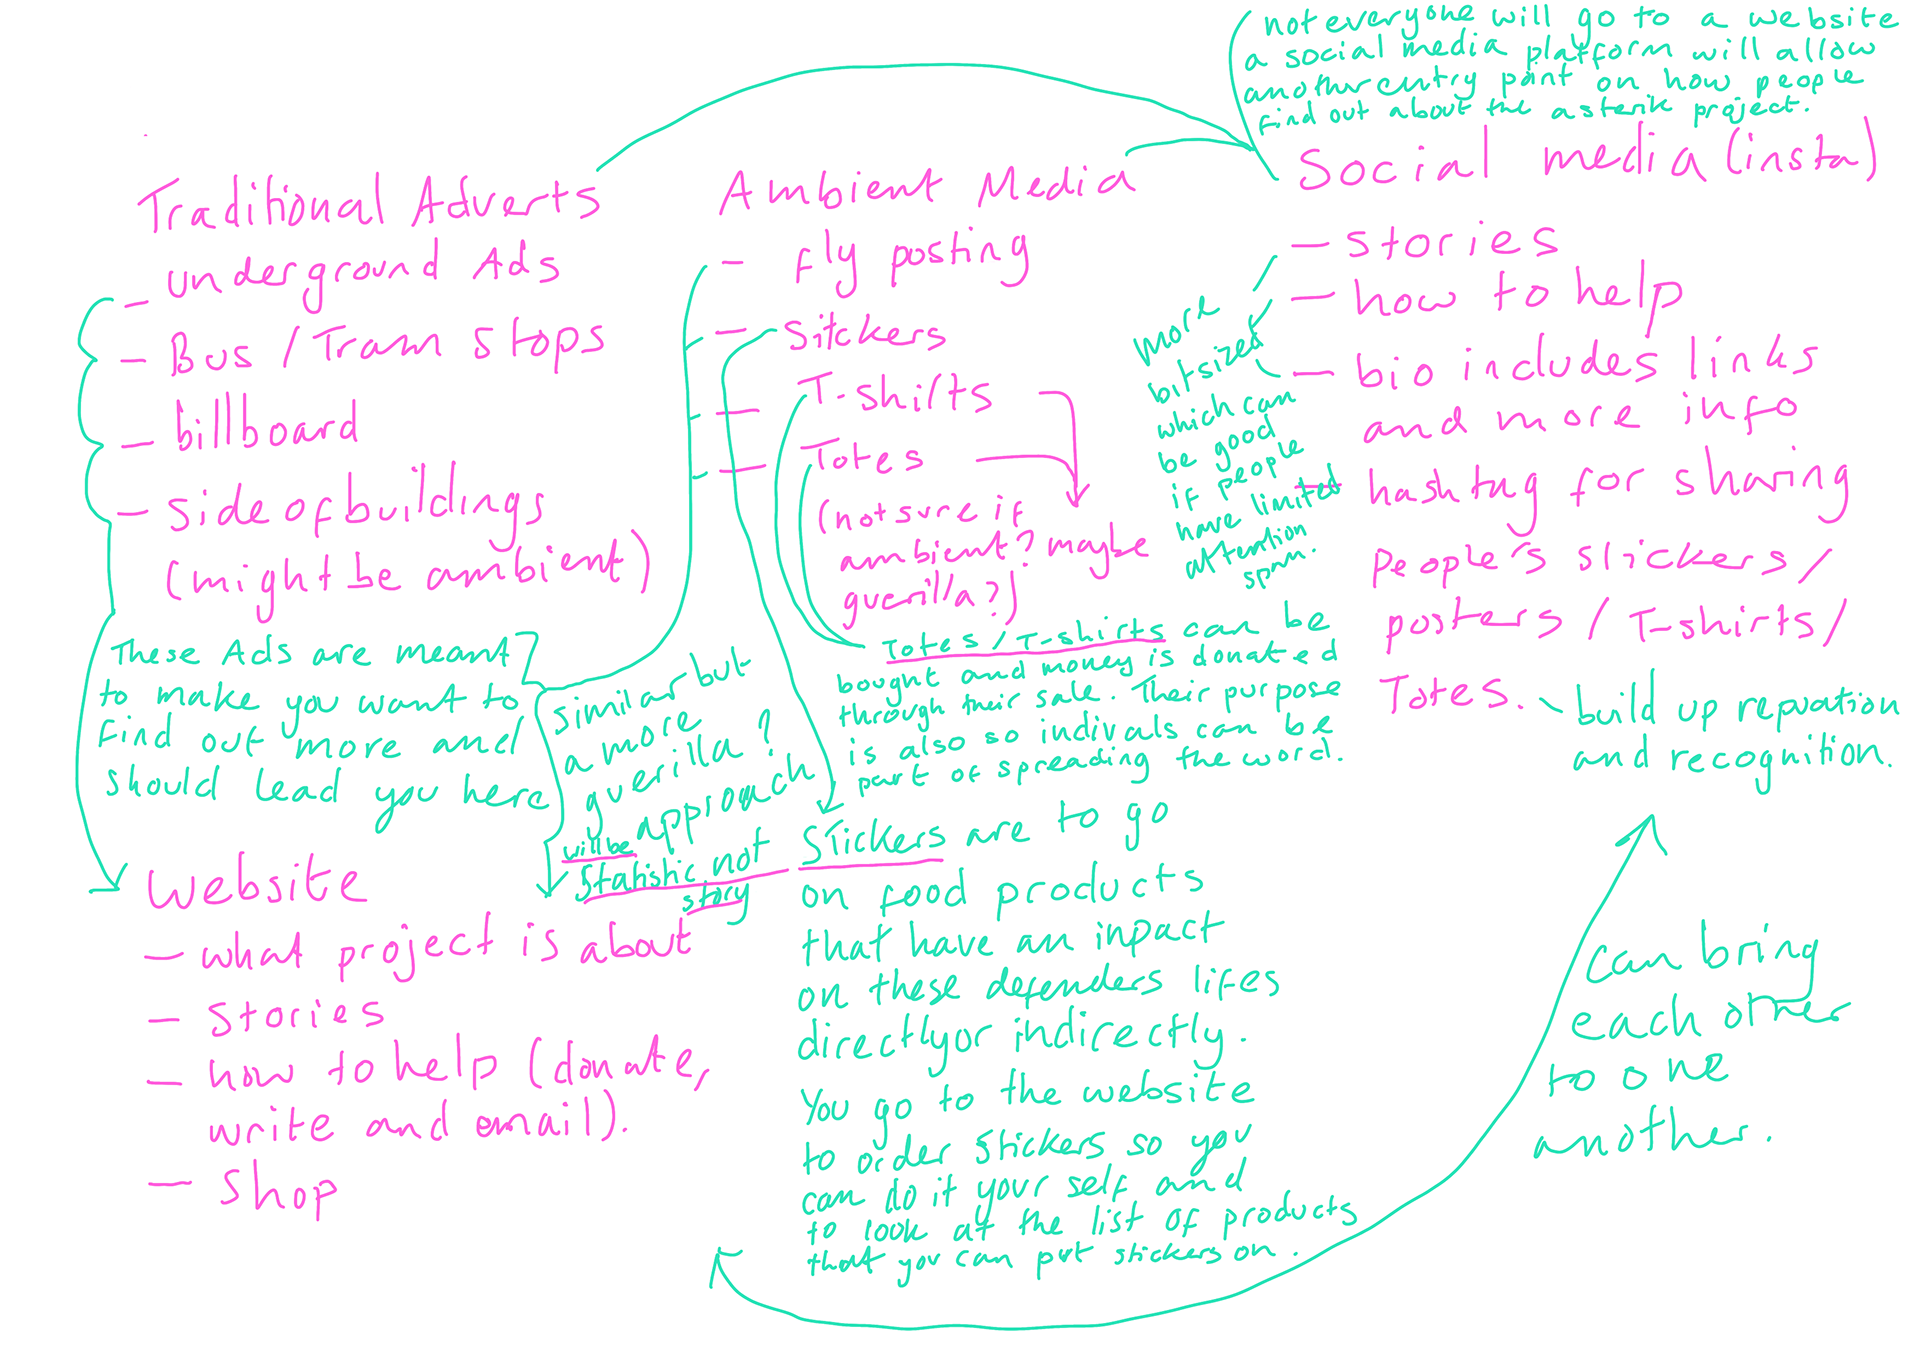 not everyone will go to a website
a social media platform will allow
another entry point on how people
find out about the asterik project.
Traditional Adverts
- underground Ads
- Bus / Tram stops
- billboard
- side of buildings
(might be ambient)
These Ads are meant
to make you want to
find out more and
should lead you here
Website
- what project is about
- stories
- how to help (donate,
write and email).
- shop
Ambient Media
- fly posting
- Sitckers
- T-shirts
- Totes
(not sure if
ambient? maybe
guerilla?)
similar but
a more
guerilla?
approach
will be
statistic not
story
Totes / T-shirts can be
bought and money is donated
through their sale. Their purpose
is also so indivals can be
part of spreading the word.
Stickers are to go
on food products
that have an inpact
on these defenders lifes
directly or indirectly.
You go to the website
to order stickers so you
can do it your self and
to look at the list of products
that you can put stickers on.
Social media (insta)
- stories
- how to help
- bio includes links
and more info
- hashtag for sharing
people's stickers /
posters / T-shirts /
Totes.
more
bitsized
which can
be good
if people
have limited
attention
span.
build up repuation
and recognition.
can bring
each other
to one
another.